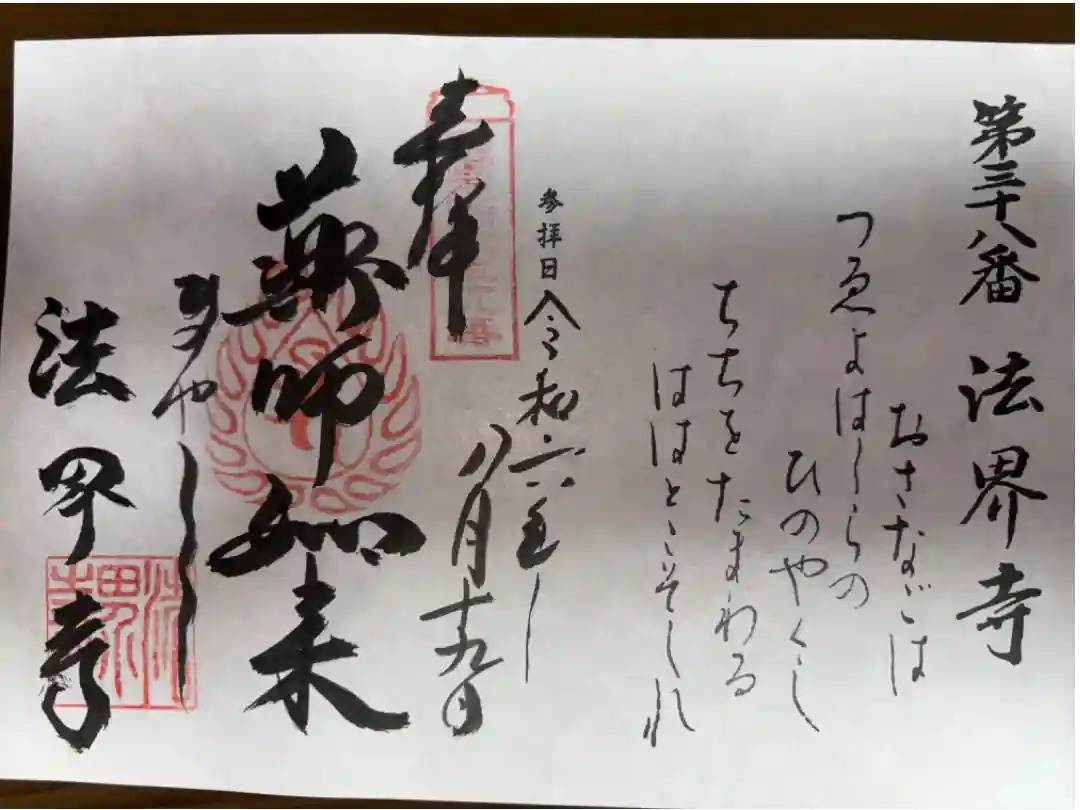 第三十八番 法界寺
おさなごは
つゑよはしらの
ひのやくし
ちちをたまわる
はほとこそしれ
参拝日 令和六年
八月十九日
奉拝
薬師如来
ひのやくし
法界寺
法界寺